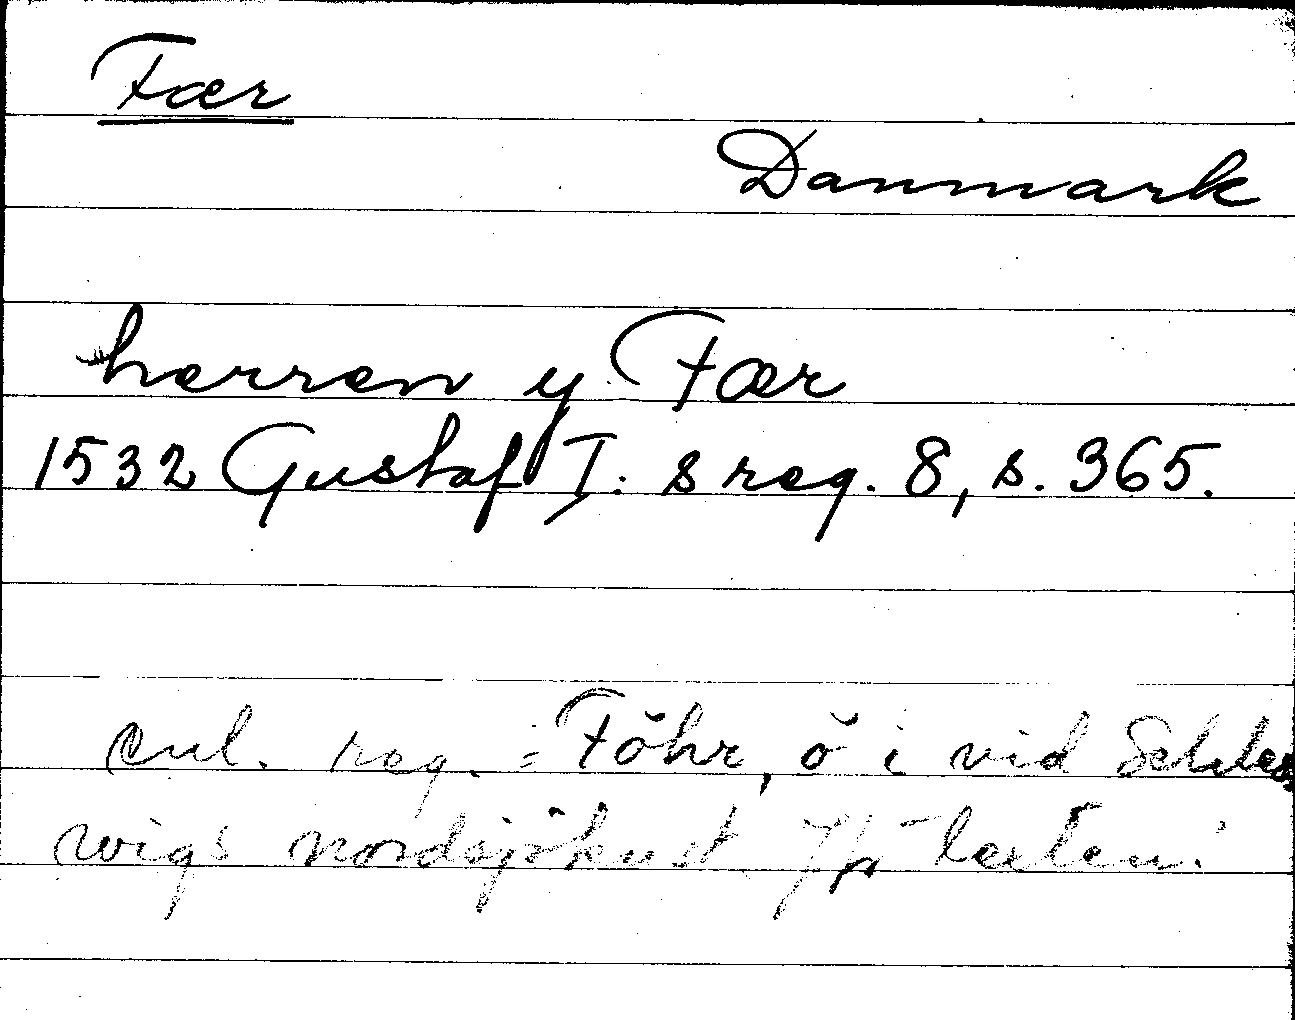 Fær
Danmark
herren y Fær
1532 Gustaf I:s reg. 8, s. 365.
enl. reg. = Föhr, ö i vid Schles
wigs nordsjökust texten.